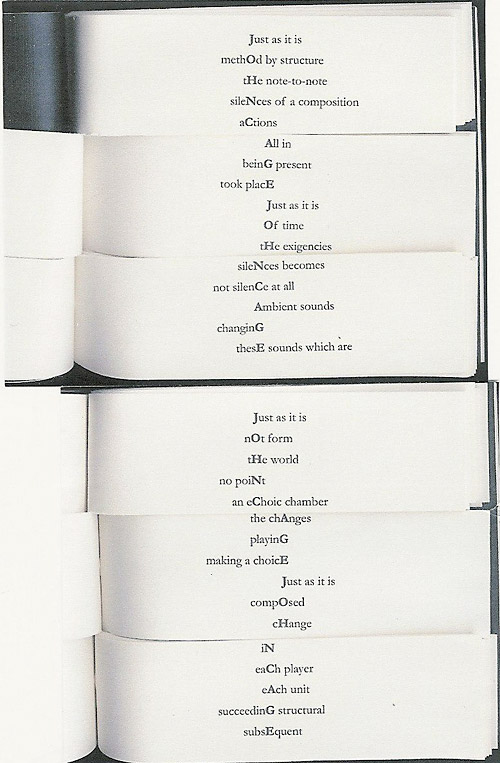 Just as it is
methOd by structure
tHe note-to-note
sileNces of a composition
aCtions
All in
beinG present
took placE
Just as it is
Of time
tHe exigencies
sileNces becomes
not silenCe at all
Ambient sounds
changinG
thesE sounds which are
Just as it is
nOt form
tHe world
no poiNt
an eChoic chamber
the chAnges
playinG
making a choicE
Just as it is
compOsed
cHange
iN
eaCh player
eAch unit
succeedinG structural
subsEquent